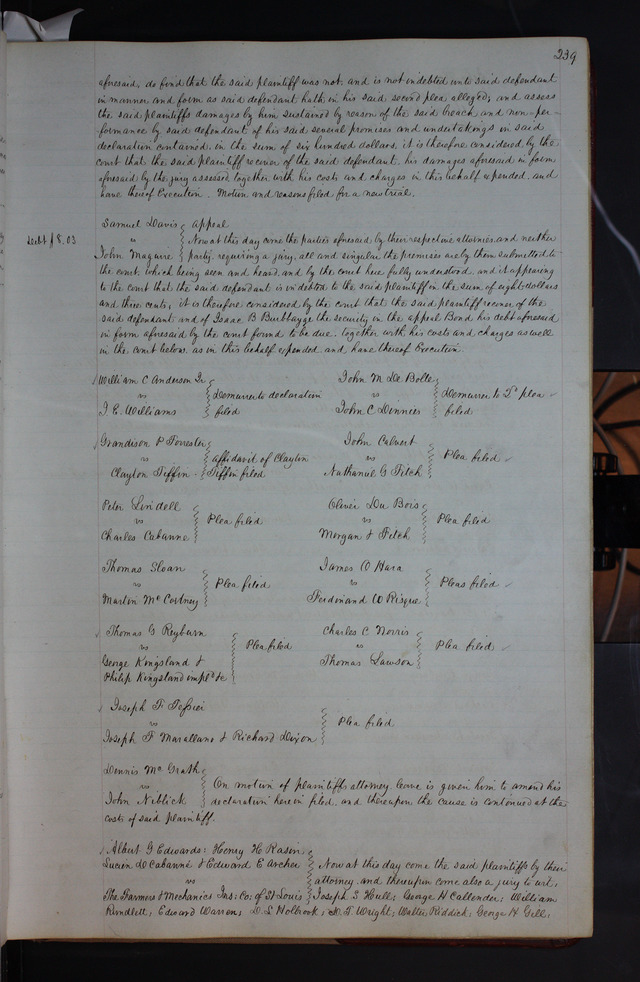 239
aforesaid, do find that the said plaintiff was not, and is not indebted unto said defendant
in manner and form as said defendant hath in his said second plea alleged, and assess
the said plaintiffs damages by him sustained by reason of the said breach and non-per-
formance by said defendant of his said several promises and undertakings in said
declaration contained, in the sum of six hundred dollars, it is therefore considered by the
court that the said plaintiff recover of the said defendant, his damages aforesaid in form
aforesaid by the jury assessed together with his costs and charges in this behalf expended, and
have thereof Execution. Motion and reasons filed for a new trial.
Samuel Davis appeal
debt $8.03
vs Now at this day come the parties aforesaid by their respective attornies and neither
John Maguire party requiring a jury, all and singular the premises are by them submitted to
the court, which being seen and heard, and by the court here fully understood, and it appearing
to the court that the said defendant is indebted to the said plaintiff in the sum of eight dollars
and three cents, it is therefore considered by the court that the said plaintiff recover of the
said defendant and of Isaac B Burbbayge the security in the appeal Bond his debt aforesaid
in form aforesaid by the court found to be due, together with his costs and charges as well
in the court below as in this behalf expended and have thereof Execution
William C Anderson Jr
vs Demurrer to declaration
J. E. Williams filed
John M De Bolle
vs Demurrer to 2d plea
John C Dinnies filed
Grandison P Forrester
vs affidavit of Clayton
Clayton Tiffin Tiffin filed
John Calvert
vs Plea filed
Nathaniel G Fitch
Peter Lindell
vs Plea filed
Charles Cabanne
Oliver Du Bois
vs Plea filed
Morgan & Fitch
Thomas Sloan
vs Plea filed
Martin McCortney
James O Hara
vs Pleas filed
Ferdinand W Risque
Thomas G Reyburn
vs Plea filed
George Kingsland &
Philip Kingsland impld &c
Charles C Norris
vs Plea filed
Thomas Lawson
Joseph F
vs Plea filed
Joseph F Marallano & Richard Dixon
Dennis McGrath
vs On motion of plaintiffs attorney leave is given him to amend his
John Niblick declaration herein filed, and thereupon the cause is continued at the
costs of said plaintiff.
Albert G Edwards: Henry H Rasin
Lucien D Cabanne & Edward E Archer Now at this day come the said plaintiffs by their
vs attorney and thereupon come also a jury to wit,
The Farmers & Mechanics Ins: Co: of St Louis Joseph S Hull, George H Callender, William
Rundlett, Edward Warren, D. S. Holbrook, W. T. Wright, Walter Riddick, George H Gill,